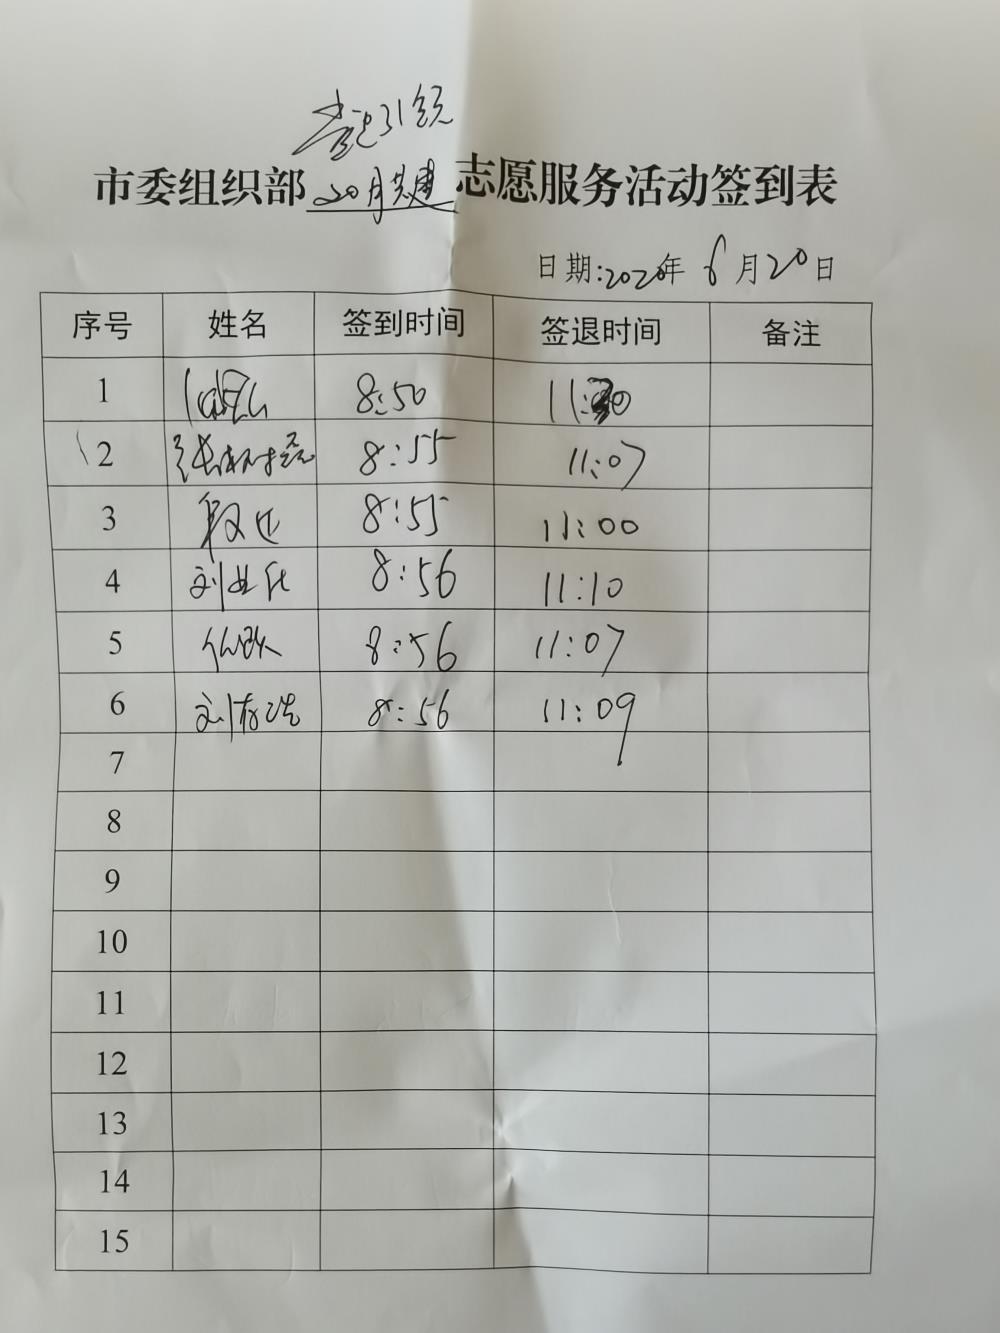 党建引领
市委组织部 双月共建 志愿服务活动签到表
日期:2020年 6月20日
序号 姓名 签到时间 签退时间 备注
1 8:50
2 8:55 11:07
3 8:55 11:00
4 刘 8:56 11:10
5 8:56 11:07
6 刘 8:56 11:09
7
8
9
10
11
12
13
14
15